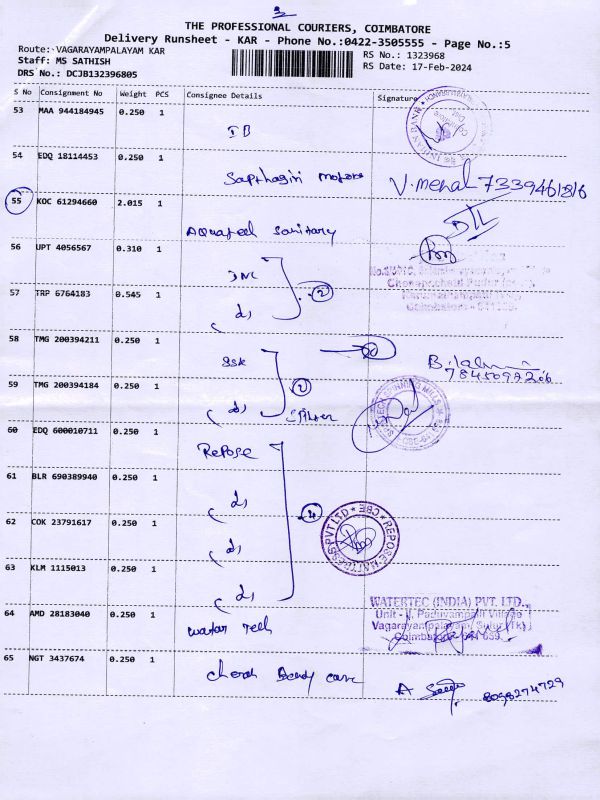 3
THE PROFESSIONAL COURIERS, COIMBATORE
Delivery Runsheet - KAR - Phone No.:0422-3505555 - Page No.:5
Route: VAGARAYAMPALAYAM KAR
RS No.: 1323968
Staff: MS SATHISH
RS Date: 17-Feb-2024
DRS No.: DCJB132396805
S No Consignment No Weight PCS Consignee Details Signature
53 MAA 944184945 0.250 1
IB
54 EDQ 18114453 0.250 1
Sapthagiri motors V. menal
55 KOC 61294660 2.015 1
Aquatech Sanitary
56 UPT 4056567 0.310 1
JNC
2
57 TRP 6764183 0.545 1
58 TMG 200394211 0.250 1
SSK
59 TMG 200394184 0.250 1
2
60 EDQ 600010711 0.250 1
Repose
61 BLR 690389940 0.250 1
4
62 COK 23791617 0.250 1
REPOSE MATTRESS PVT LTD CBE
63 KLM 1115013 0.250 1
WATERTEC (INDIA) PVT. LTD.,
Unit - II, Paduvampalli Village
64 AMD 28183040 0.250 1
Vagarayampalayam, Sulur (Tk)
water tech
Coimbatore - 641 659.
65 NGT 3437674 0.250 1
Body care
8098274729